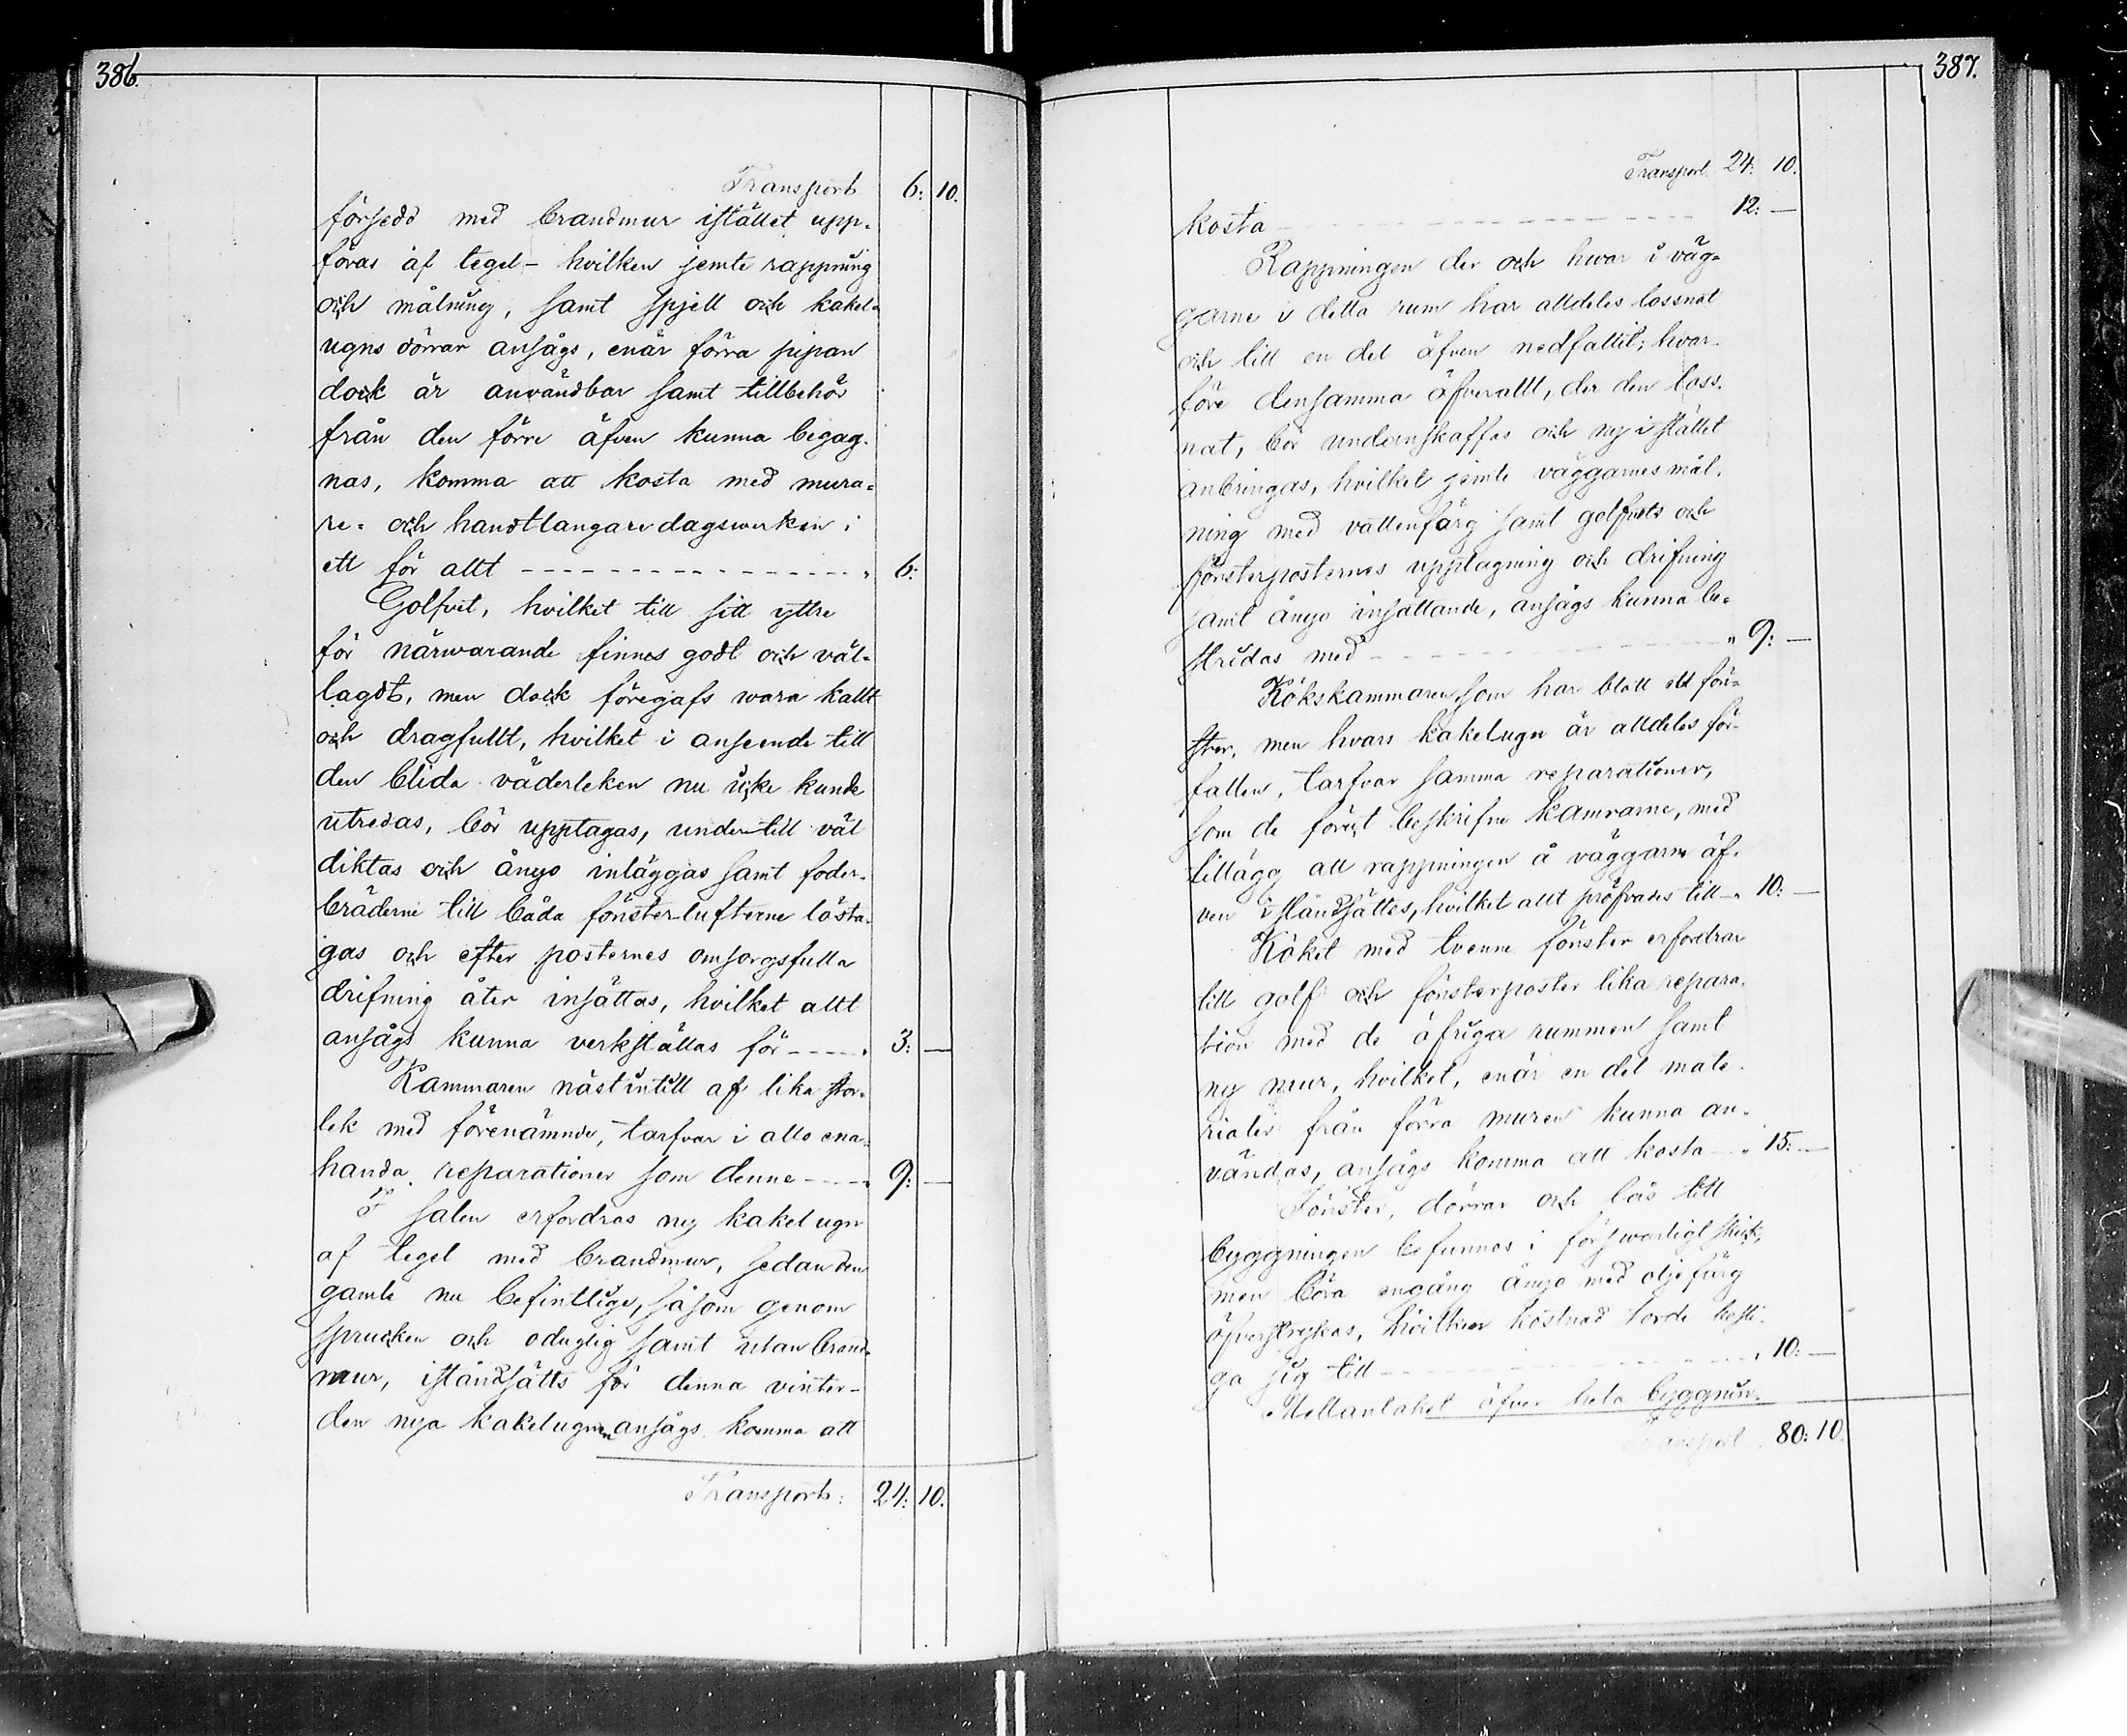 386.
Transport 6: 10.
försedd med brandmur istället upp-
föras af tegel – hvilken jemte rappning
och målning, samt spjell och kakel-
ugns dörrar ansågs, enär förra pipan
dock är användbar samt tillbehör
från den förre äfven kunna begag-
nas, komma att kosta med mura-
re- och handtlangare dagsverken i
ett för allt - - - - - - - - - - - - - - „ 6:
Golfvet, hvilket till sitt yttre
för närwarande finnes godt och väl-
lagdt, men dock föregafs wara kallt
och dragfullt, hvilket i anseende till
den blida väderleken nu icke kunde
utredas, bör upptagas, undertill väl
diktas och ånyo inläggas samt foder-
bräderne till båda fönster-lufterne lösta-
gas och efter posternes omsorgsfulla
drifning åter insättas, hvilket allt
ansågs kunna verkställas för - - - - „ 3: —
Kammaren näst intill af lika stor-
lek med förenämnde, tarfvar i allo ena-
handa reparationer som denne - - - - „ 9: —
I salen erfordras ny kakelugn
af tegel med brandmur, sedan den
gamle nu befintlige, såsom genom
sprucken och oduglig samt utan brand-
mur, iståndsätts för denna vinter –
den nya kakelugnen ansågs komma att
Transport: 24: 10.
387.
Transport 24: 10.
kosta - - - - - - - - - - - - - - 12: —
Rappningen der och hvar i väg-
garne i detta rum har alldeles lossnat
och till en del äfven nedfallit; hvar-
före densamma öfverallt, der den loss-
nat, bör undanskaffas och ny i stället
anbringas, hvilket jemte väggarnes mål-
ning med vattenfärg samt golfvets och
fönsterposternes upptagning och drifning
samt ånyo insättande, ansågs kunna be-
stridas med - - - - - - - - - - - - „ 9: —
Kökskammaren, som har blott ett fön-
ster, men hvars kakelugn är alldeles för-
fallen, tarfvar samma reparationer,
som de förut beskrifne kamrarne, med
tillägg att rappningen å väggarne äf-
ven iståndsättes, hvilket allt pröfvades till „ 10: —
Köket med tvenne fönster erfordrar
till golf och fönsterposter lika repara-
tion med de öfriga rummen samt
ny mur, hvilket, enär en del mate-
rialier från förra muren kunna an-
vändas, ansågs komma att kosta — „ 15: —
Fönster, dörrar och lås till
byggningen befunnos i försvarligt skick,
men böra engång ånyo med oljefärg
öfverstrykas, hvilken kostnad torde besti-
ga sig till - - - - - - - - - - - - „ 10: —
Mellantaket öfver hela byggnin-
Transport 80: 10.